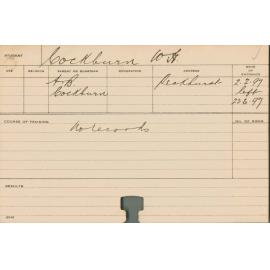 STUDENT Cockburn W A.
AGE RELIGION PARENT OR GUARDIAN OCCUPATION ADDRESS DATE OF ENTRANCE
A. B. Peakhurst 2.2.97
Cockburn left
22.6.97
COURSE OF TRAINING NO. OF BOOK
No records
RESULTS